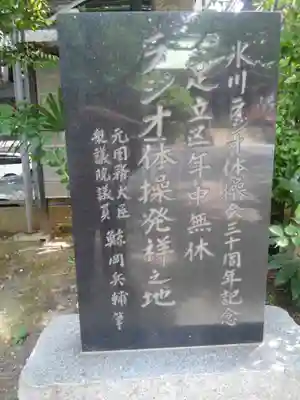 氷川京平体操会三十周年記念
足立区年中無休
ラジオ体操発祥之地
元国務大臣
衆議院議員 鯨岡兵輔筆